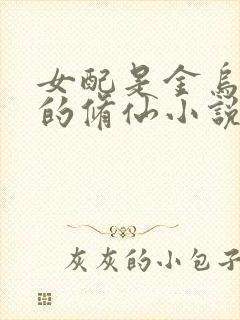 女配是金烏
的脩仙小說
灰灰的小包子